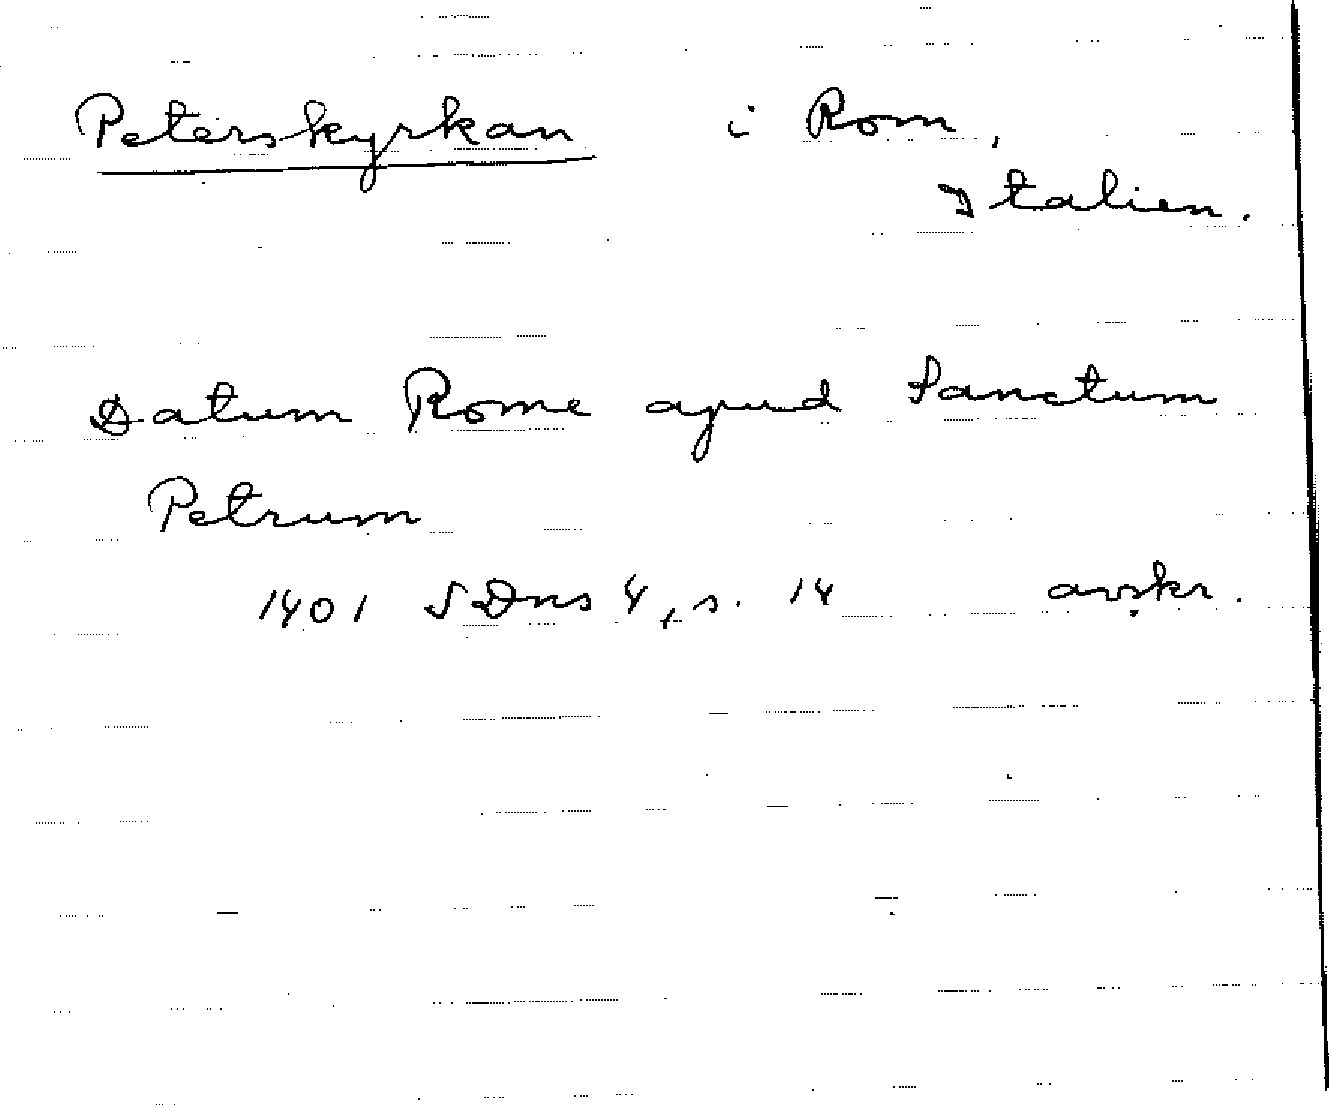 Peterskyrkan i Rom,
Italien.
Datum Rome apud Sanctum
Petrum
1401 SDns 4, s. 14 avskr.